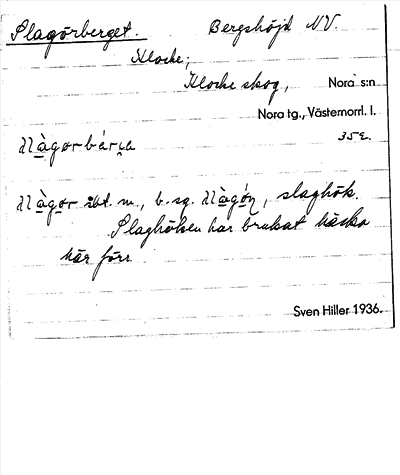 Slagörberget. Bergshöjd NV.
Klocke;
Klocke skog, Nora s:n
Nora tg., Västernorrl. l.
35 2.
m., b. sg. , slaghök.
Slaghöken har brukat häcka
här förr.
Sven Hiller 1936.